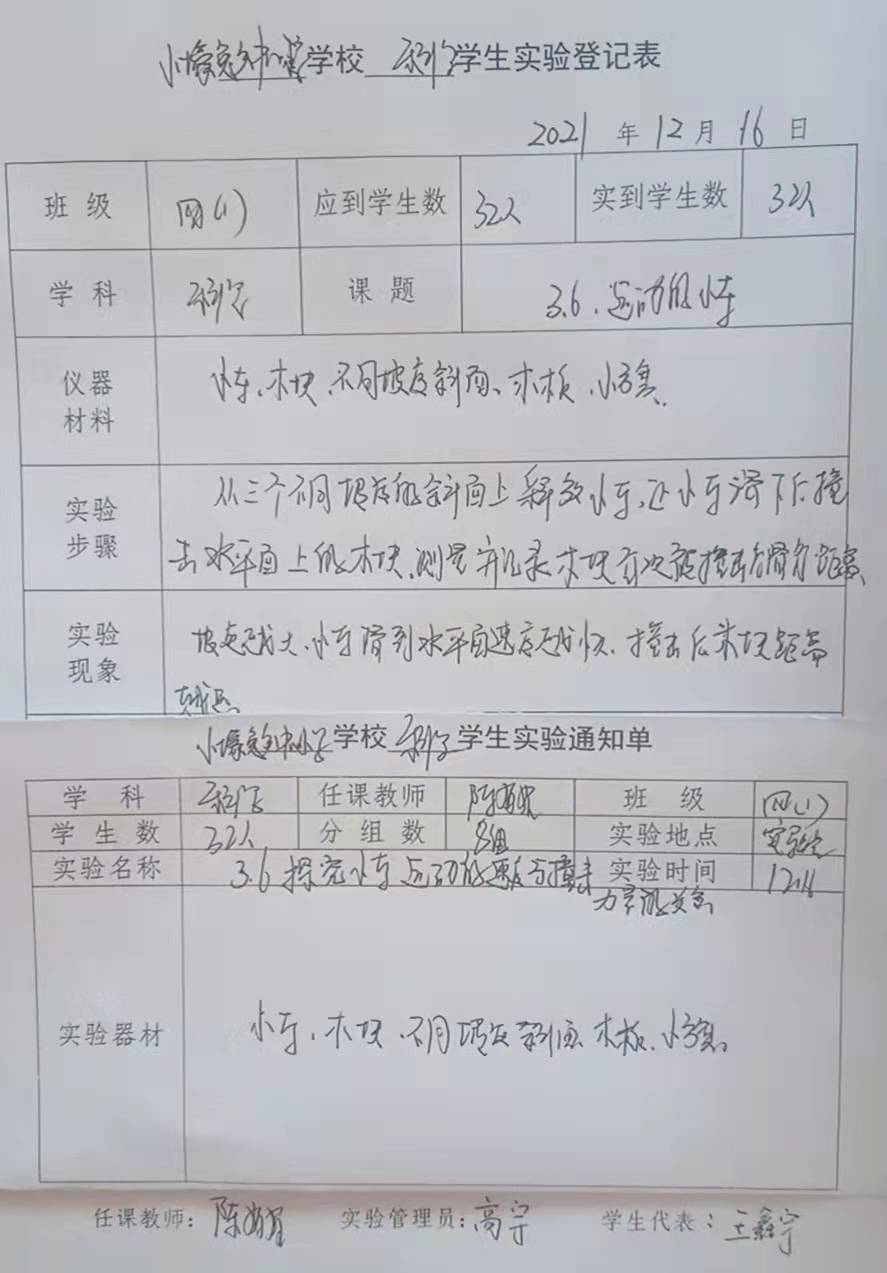 学校 科学学生实验登记表
2021 年 12 月 16 日
班 级 四(1) 应到学生数 32人 实到学生数 32人
学 科 科学 课 题 3.6.运动的小车
仪器材料 小车、木块、不同坡度斜面、木板、小旗。
实验步骤 从三个不同坡度的斜面上释放小车,让小车滑下后撞
击水平面上的木块,测量并记录木块每次被撞击后滑行距离
实验现象 坡度越大,小车滑到水平面速度越快,撞击后木块距离
越远
学校 科学学生实验通知单
学 科 科学 任课教师 陈 班 级 四(1)
学生数 32人 分组数 8组 实验地点 实验室
实验名称 3.6 探究小车运动的速度与撞击 实验时间 12.16
力量的关系
实验器材 小车、木块、不同坡度斜面、木板、小旗。
任课教师:陈 实验管理员:高宇 学生代表:王鑫宁